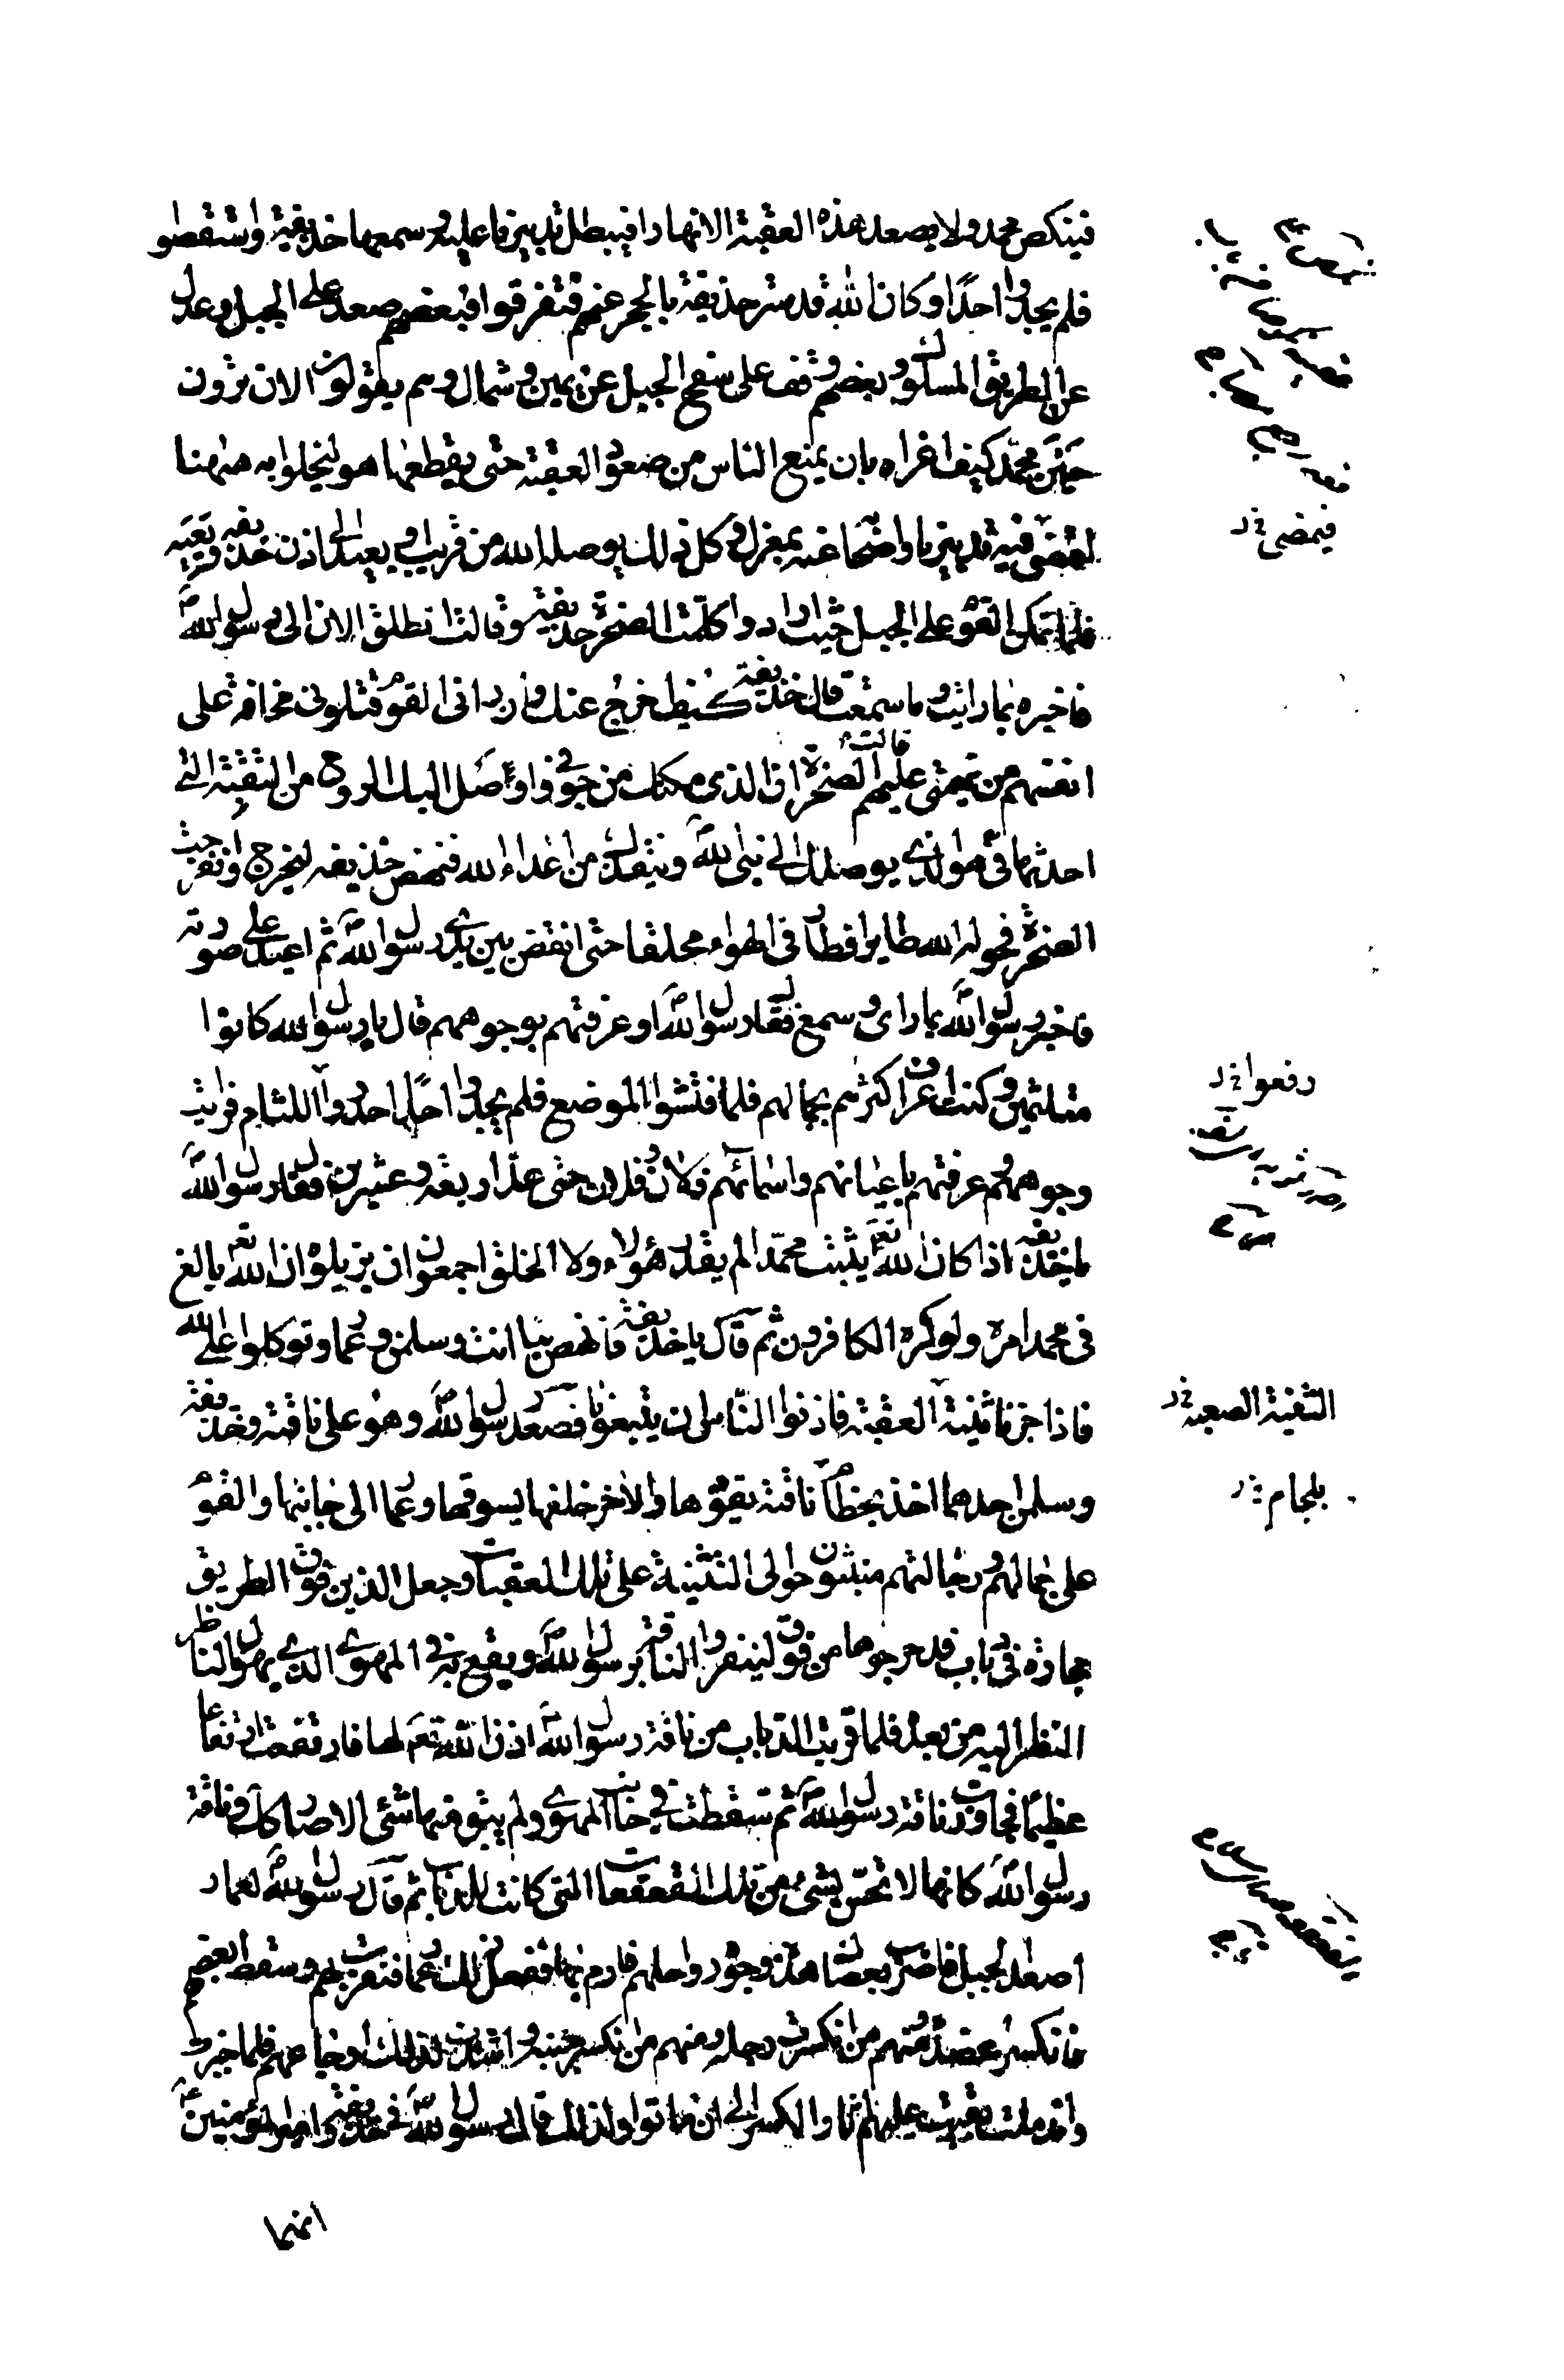 فينكص محمد ولا يصعد هذه العقبة الا نهارا فيبطل تدبيرنا عليه وسمعها حذيفة واستقصوا
فلم يجدوا احدا وكان الله قد ستر حذيفة بالحجر عنهم فتفرقوا فبعضهم صعد على الجبل وعدل
عن الطريق المسلوك وبعضهم وقف على سفح الجبل عن يمين وشمال وهم يقولون الان ترون
حين محمد كيف اغراه بان يمنع الناس من صعود العقبة حتى يقطعها هو لنخلوا به هيهنا
لنمضى فيه تدبيرنا واصحابه عنه بمعزل وكل ذلك يوصله الله من قريب او بعيد الى اذن حذيفة ويعيه
فلما تمكن القوم على الجبل حيث ارادوا كلمت الصخرة حذيفة وقالت انطلق الان الى رسول الله
فاخبره بما رايت وما سمعت قال حذيفة كيف اخرج عنك وان رانى القوم قتلونى مخافة على
انفسهم من نميمتى عليهم قالت الصخرة ان الذى مكنك من جوفى واوصل اليك الروح من الثقبة التى
احدثها فى هو الذى يوصلك الى نبى الله وينقذك من اعداء الله فنهض حذيفه ليخرج وانفرجت
الصخرة فحوله الله طايرا فطار فى الهواء محلقا حتى انقض بين يدى رسول الله ثم اعيد على صورته
فاخبر رسول الله بما راى وسمع فقال رسول الله اوعرفتهم بوجوههم قال يا رسول الله كانوا
متلثمين وكنت اعرف اكثرهم بجمالهم فلما فتشوا الموضع فلم يجدوا احدا احدروا اللثام فرايت
وجوههم وعرفتهم باعيانهم واسمائهم فلان وفلان حتى عد اربعة وعشرين فقال رسول الله
يا حذيفه اذا كان الله تعالى يثبت محمدا لم يقدر هؤلاء ولا الخلق اجمعون ان يزيلوه ان الله تعالى بالغ
فى محمد امره ولو كره الكافرون ثم قال يا حذيفة فانهض بنا انت وسلمن وعمار وتوكلوا على الله
فاذا جزنا ثنية العقبة فاذنوا للناس ان يتبعونا فصعد رسول الله وهو على ناقته وحذيفة
وسلمن احدهما اخذ بخطام ناقته يقودها والاخر خلفها يسوقها وعمار الى جانبها والقوم
على جمالهم ورجالتهم منبثون حوالى الثنية على تلك العقبات وجعل الذين فوق الطريق
حجارة فى دباب فدحرجوها من فوق لينفروا الناقة برسول الله ويقع به فى المهوى الذى يهول الناظر
النظر اليه من بعد فلما قربت الدباب من ناقة رسول الله اذن الله تعالى لها فارتفعت ارتفاعا
عظيما فجاوزت ناقة رسول الله ثم سقطت فى جانب المهوى ولم يبق منها شئ الا صار كذلك وناقة
رسول الله كانها لا تحس بشئ من تلك القعقعات التى كانت للدباب ثم قال رسول الله لعمار
اصعد الجبل فاضرب بعصاك هذه وجوه رواحلهم فارم بها ففعل ذلك عمار فنفرت بهم وسقط بعضهم
فانكسر عضده ومنهم من انكسرت رجله ومنهم من انكسر جنبه واشتدت لذلك اوجاعهم فلما جبرت
واندملت بقيت عليهم اثار الكسر الى ان ماتوا ولذلك قال رسول الله فى حذيفة وامير المؤمنين
انهما
فيمضى خ د
رفعوا خ د
الثنية الصعبه خ د
بلجام خ د